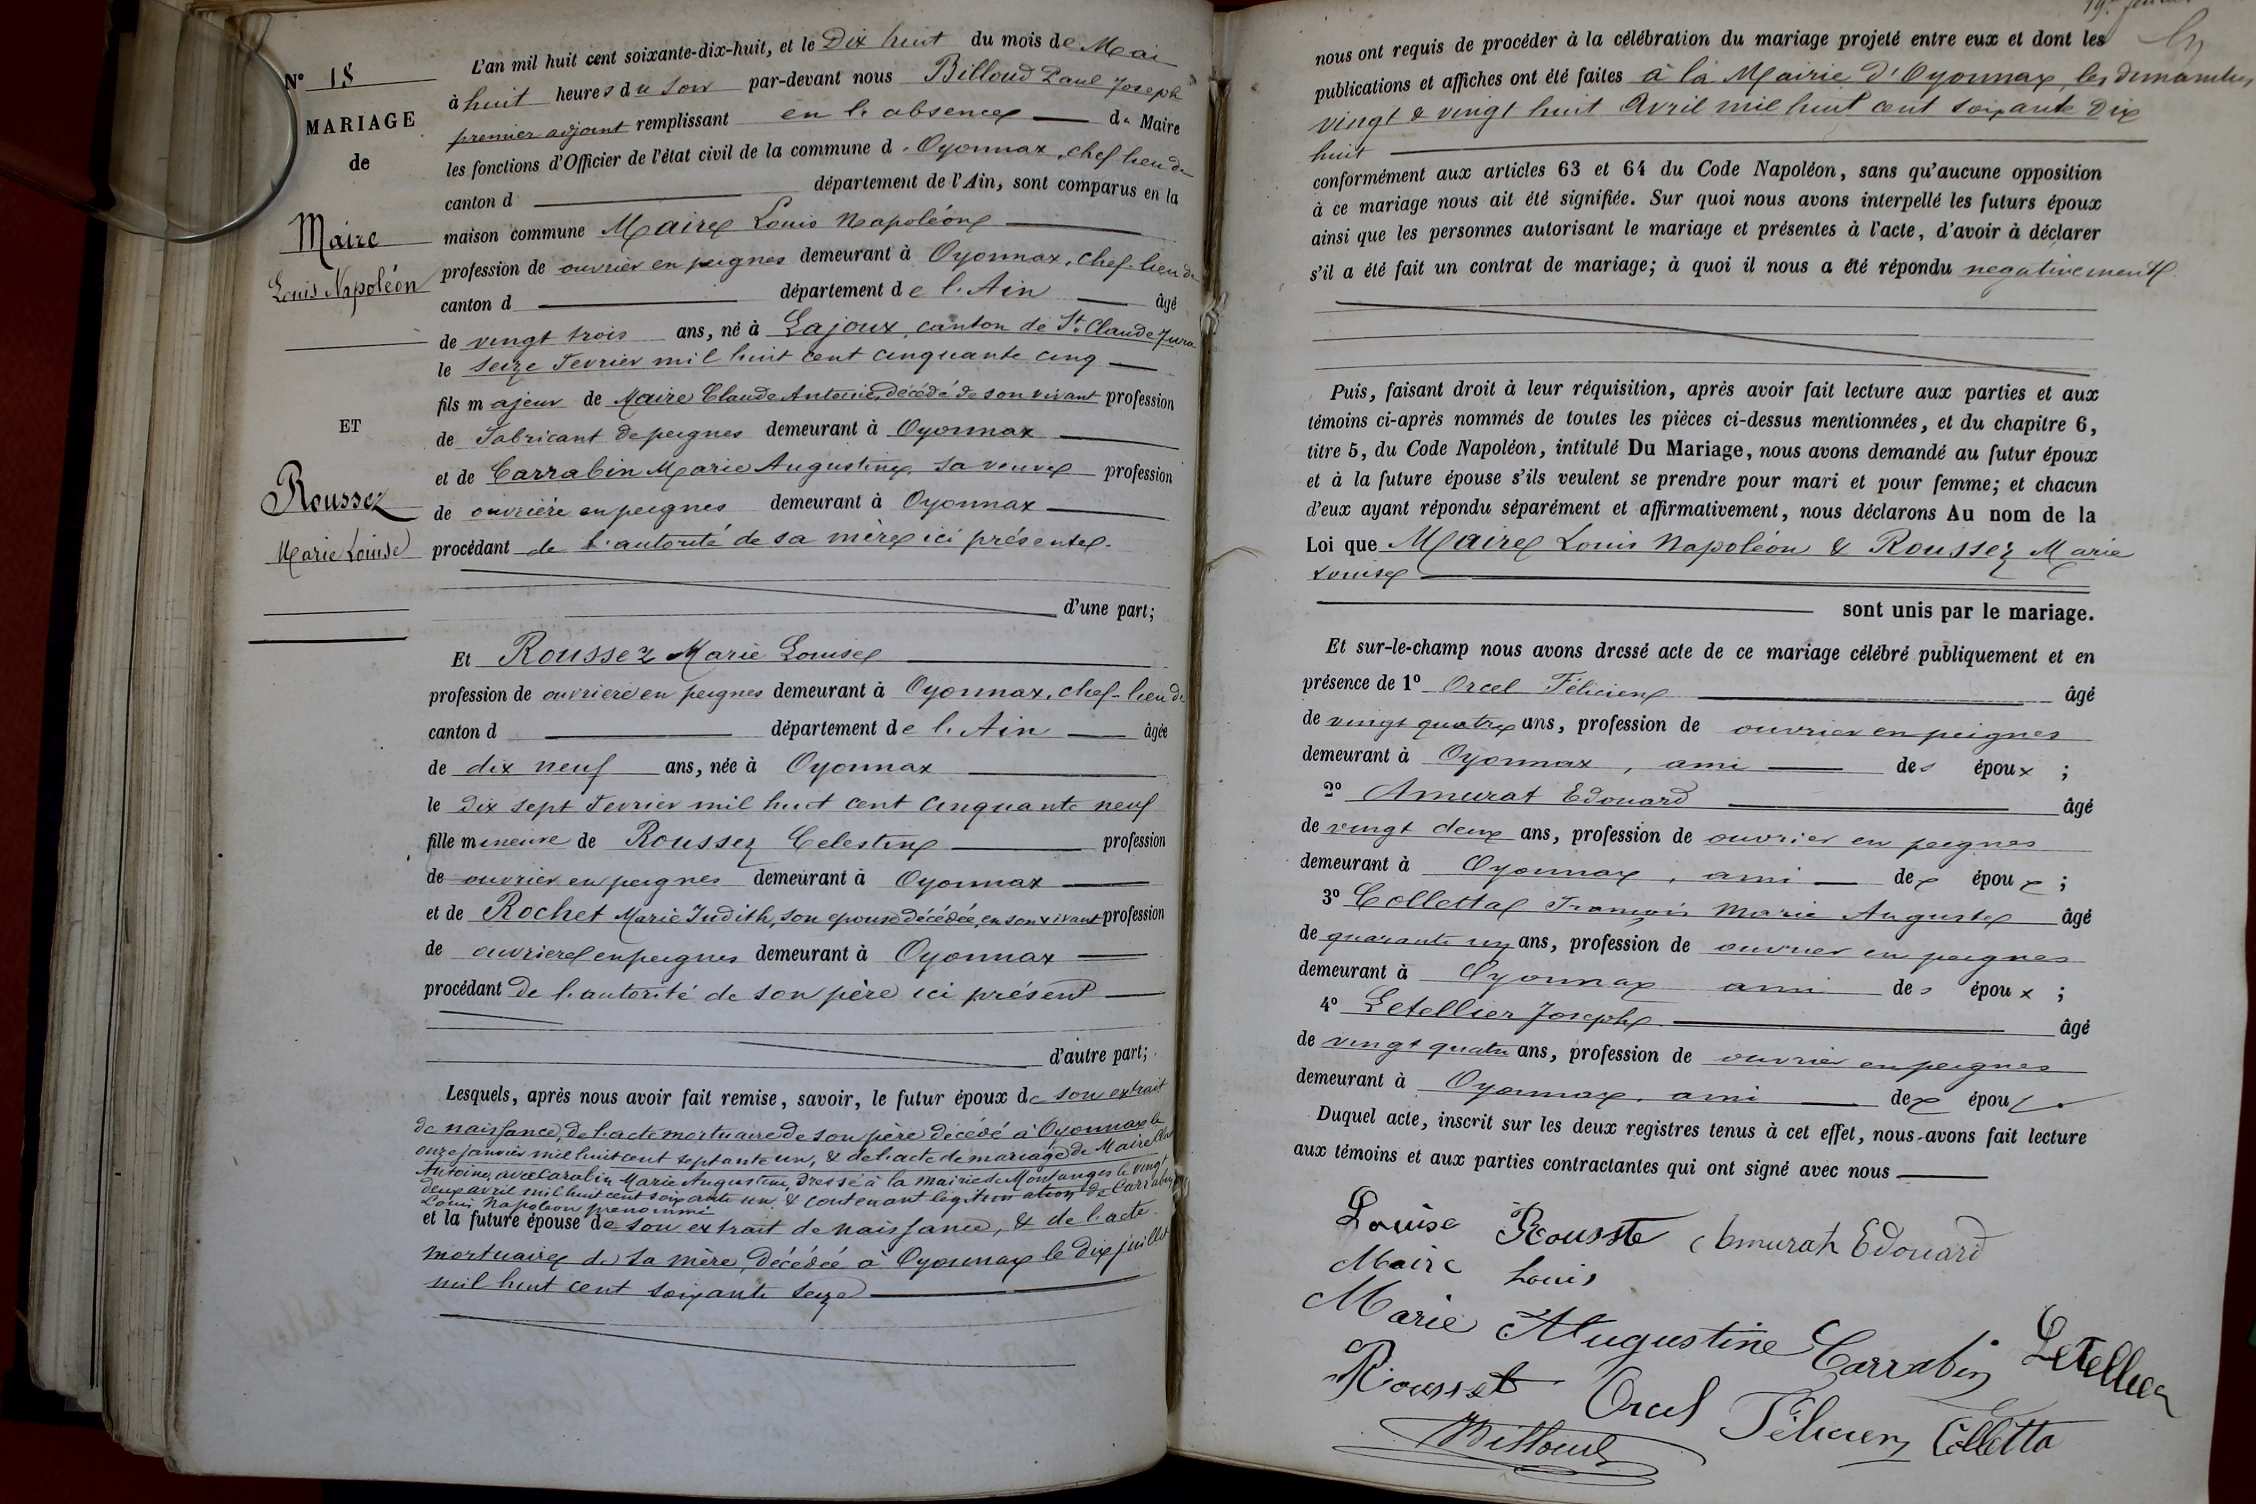 N° 18
MARIAGE
de
Maire
Louis Napoléon
ET
Roussez
Marie Louise
L'an mil huit cent soixante-dix-huit, et le Dix huit du mois de Mai
à huit heures du soir par-devant nous Billoud Paul Joseph
premier adjoint remplissant en l'absence du Maire
les fonctions d'Officier de l'état civil de la commune d'Oyonnax, chef lieu de
canton d département de l'Ain, sont comparus en la
maison commune Maire Louis Napoléon
profession de ouvrier en peignes demeurant à Oyonnax, chef-lieu de
canton d département de l'Ain âgé
de vingt trois ans, né à Lajoux, canton de St. Claude Jura
le seize Fevrier mil huit cent cinquante cinq
fils majeur de Maire Claude Antoine, décédé de son vivant profession
de Fabricant de peignes demeurant à Oyonnax
et de Carrabin Marie Augustine, sa veuve profession
de ouvrière en peignes demeurant à Oyonnax
procédant de l'autorité de sa mère ici présente.
d'une part;
Et Roussez Marie Louise
profession de ouvriere en peignes demeurant à Oyonnax, chef-lieu de
canton d département de l'Ain âgée
de dix neuf ans, née à Oyonnax
le dix sept Fevrier mil huit cent cinquante neuf
fille mineure de Roussez Celestin profession
de ouvrier en peignes demeurant à Oyonnax
et de Rochet Marie Judith, son epouse décédée, en son vivant profession
de ouvriere en peignes demeurant à Oyonnax
procédant de l'autorité de son père ici présent
d'autre part;
Lesquels, après nous avoir fait remise, savoir, le futur époux de son extrait
de naissance, de l'acte mortuaire de son père décédé à Oyonnax le
onze janvier mil huit cent septante un, & de l'acte de mariage de Maire
Antoine avec Carabin Marie Augustine, dressé à la mairie de Montanges le vingt
deux avril mil huit cent soixante un & contenant légitimation de Carrabin
Louis Napoleon prenommé
et la future épouse de son extrait de naissance, & de l'acte
mortuaire de sa mère, décédée à Oyonnax le dix juillet
mil huit cent soixante seize
nous ont requis de procéder à la célébration du mariage projeté entre eux et dont les
publications et affiches ont été faites à la Mairie d'Oyonnax, les dimanches
vingt & vingt huit Avril mil huit cent soixante dix
huit
conformément aux articles 63 et 64 du Code Napoléon, sans qu'aucune opposition
à ce mariage nous ait été signifiée. Sur quoi nous avons interpellé les futurs époux
ainsi que les personnes autorisant le mariage et présentes à l'acte, d'avoir à déclarer
s'il a été fait un contrat de mariage; à quoi il nous a été répondu negativement
Puis, faisant droit à leur réquisition, après avoir fait lecture aux parties et aux
témoins ci-après nommés de toutes les pièces ci-dessus mentionnées, et du chapitre 6,
titre 5, du Code Napoléon, intitulé Du Mariage, nous avons demandé au futur époux
et à la future épouse s'ils veulent se prendre pour mari et pour femme; et chacun
d'eux ayant répondu séparément et affirmativement, nous déclarons Au nom de la
Loi que Maire Louis Napoléon & Roussez Marie
Louise
sont unis par le mariage.
Et sur-le-champ nous avons dressé acte de ce mariage célébré publiquement et en
présence de 1° Orcel Félicien âgé
de vingt quatre ans, profession de ouvrier en peignes
demeurant à Oyonnax, ami des époux;
2° Amurat Edouard âgé
de vingt deux ans, profession de ouvrier en peignes
demeurant à Oyonnax, ami des époux;
3° Colletta François Marie Auguste âgé
de quarante un ans, profession de ouvrier en peignes
demeurant à Oyonnax ami des époux;
4° Letellier Joseph âgé
de vingt quatre ans, profession de ouvrier en peignes
demeurant à Oyonnax, ami des époux.
Duquel acte, inscrit sur les deux registres tenus à cet effet, nous avons fait lecture
aux témoins et aux parties contractantes qui ont signé avec nous
Louise Rousste Amurat Edouard
Maire Louis
Marie Augustine Carrabin Letellier
Rousset Orcel Félicien Colletta
Billoud